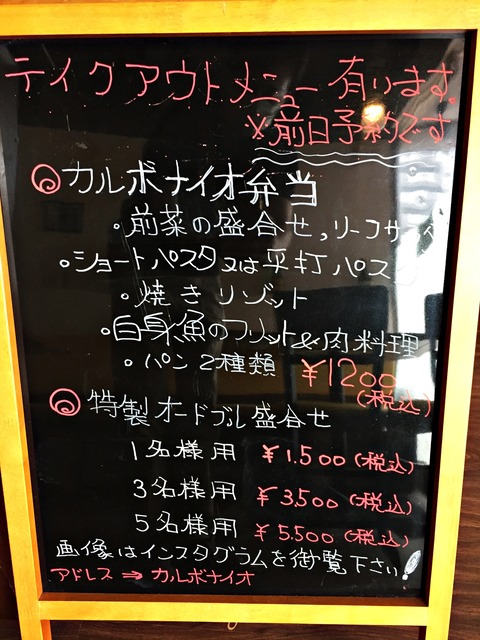 テイクアウトメニュー有ります。
※前日予約です
◎カルボナイオ弁当
・前菜の盛合せ,リーフサ
・ショートパスタ又は平打パスタ
・焼きリゾット
・白身魚のフリット&肉料理
・パン2種類 ¥1200
(税込)
◎特製オードブル盛合せ
1名様用 ¥1.500(税込)
3名様用 ¥3,500(税込)
5名様用 ¥5.500(税込)
画像はインスタグラムを御覧下さい!
アドレス⇒カルボナイオ